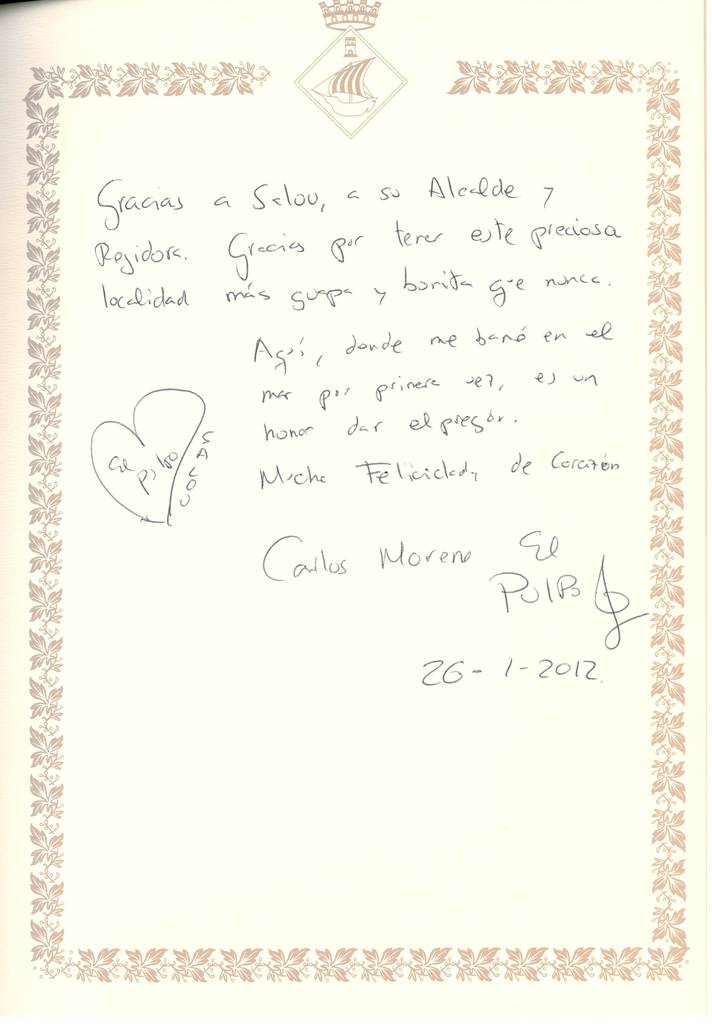 Gracias a Salou, a su Alcalde y
Regidora. Gracias por tener este preciosa
localidad más guapa y bonita que nunca.
Aquí, donde me bañó en el
mar por primera vez, es un
honor dar el pregón.
Mucha Felicidad, de Corazón
el pulpo
SALOU
Carlos Moreno El
PULPO
26-1-2012.